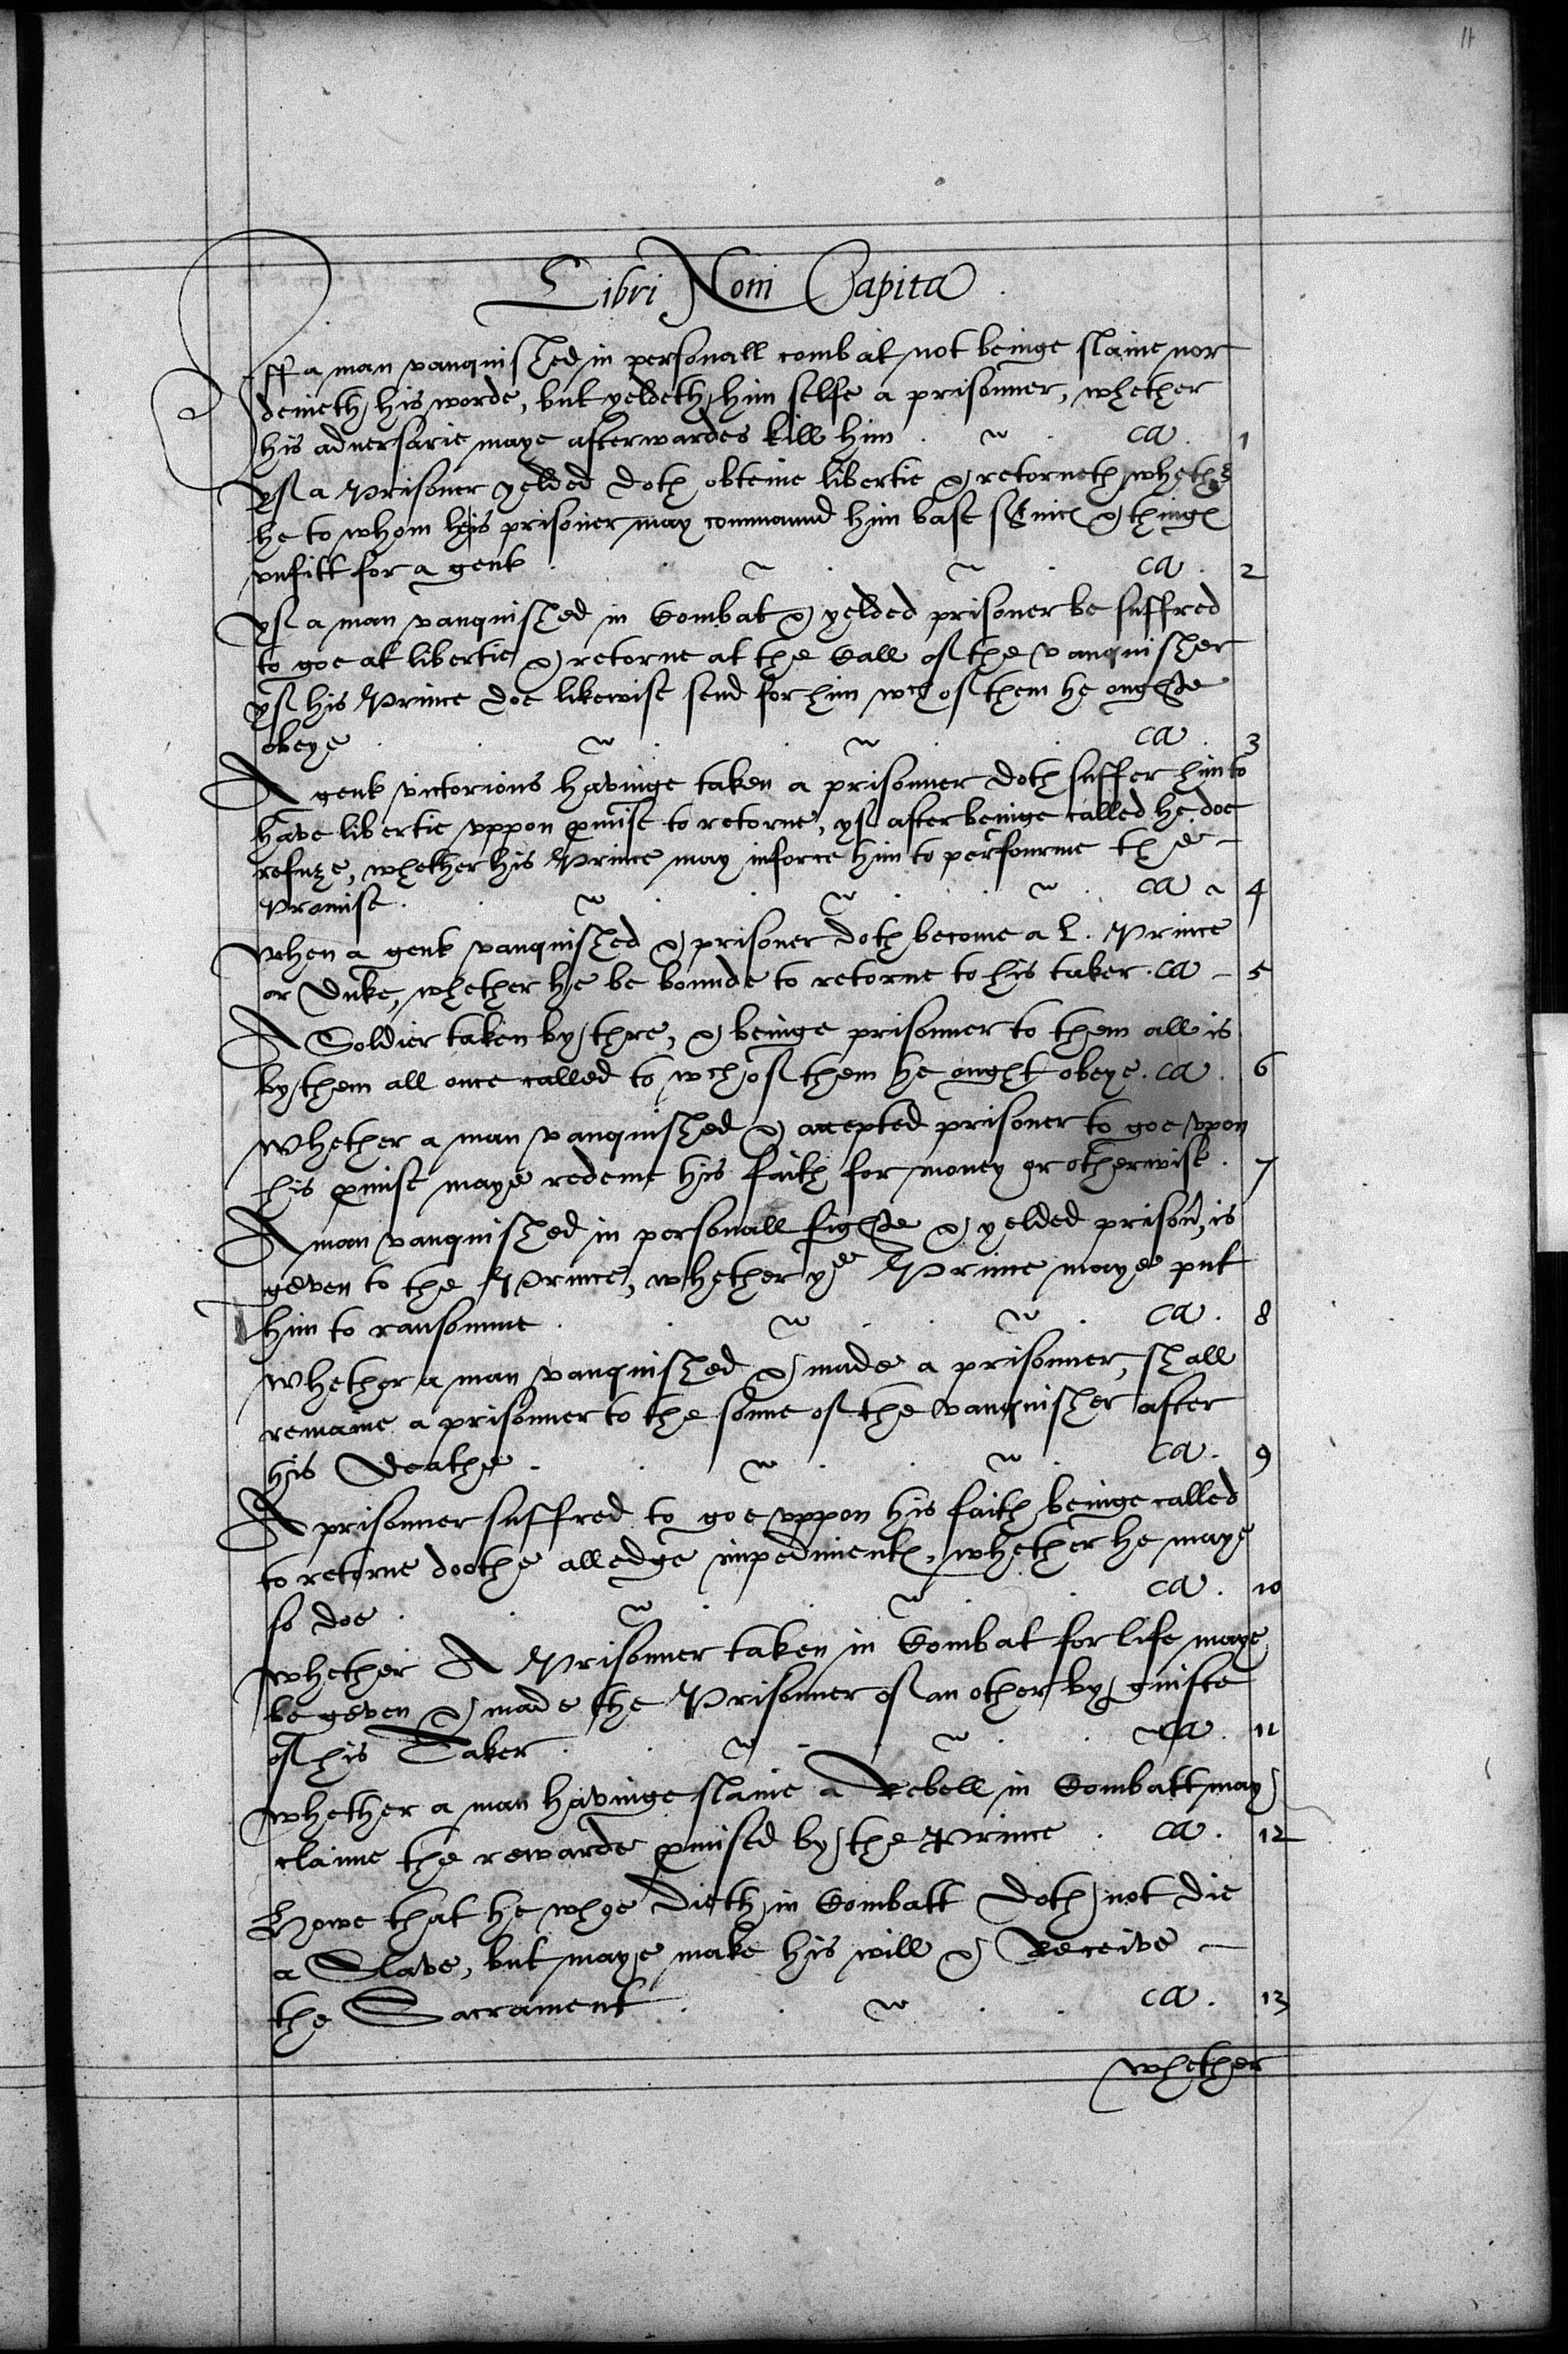 11
Libri Noni Capita
Iff a man vanquished in personall combat not beinge slaine nor
denieth his worde, but yeldeth him selfe a prisonner, whether
his adversarie maye afterwardes kill him . ca . 1
yf a Prisoner yelded doth obteine libertie & retorneth whether
he to whom he is prisoner may commaund him base service & things
unfitt for a gent . ca . 2
yf a man vanquished in Combat & yelded prisoner be suffred
to goe at libertie & retorne at the Call of the vanquisher
yf his Prince doe likewise send for him wch of them he oughte
obeye . ca . 3
A gent victorious havinge taken a prisonner doth suffer him to
have libertie uppon pmise to retorne, yf after beinge called he doe
refuze, whether his Prince may inforce him to perfourme the
Promise . ca 4
when a gent vanquished & prisoner doth become a L. Prince
or Duke, whether he be bounde to retorne to his taker . ca 5
A Soldier taken by thre, & beinge prisonner to them all is
by them all once called to wch of them he ought obeye . ca . 6
whether a man vanquished & accepted prisoner to goe upon
his pmise maye redeme his faith for money or otherwise . 7
A man vanquished in personall fighte & yelded prisonr, is
geven to the Prince, whether ye Prince maye put
him to ransomme . ca . 8
whether a man vanquished & made a prisonner, shall
remaine a prisonner to the sonne of the vanquisher after
his Deathe . ca . 9
A prisonner suffred to goe uppon his faith beinge called
to retorne doothe alledge impediments, whether he maye
so doe . ca . 10
whether A Prisonner taken in Combat for life maye
be geven & made the Prisonner of an other by guifte
of his Taker . ca . 11
whether a man havinge slaine a Rebell in Combatt may
claime the rewarde pmised by the Prince . ca . 12
Howe that he whoe dieth in Combatt doth not die
a Slave, but maye make his will & Receive
the Sacrament . ca . 13
whether